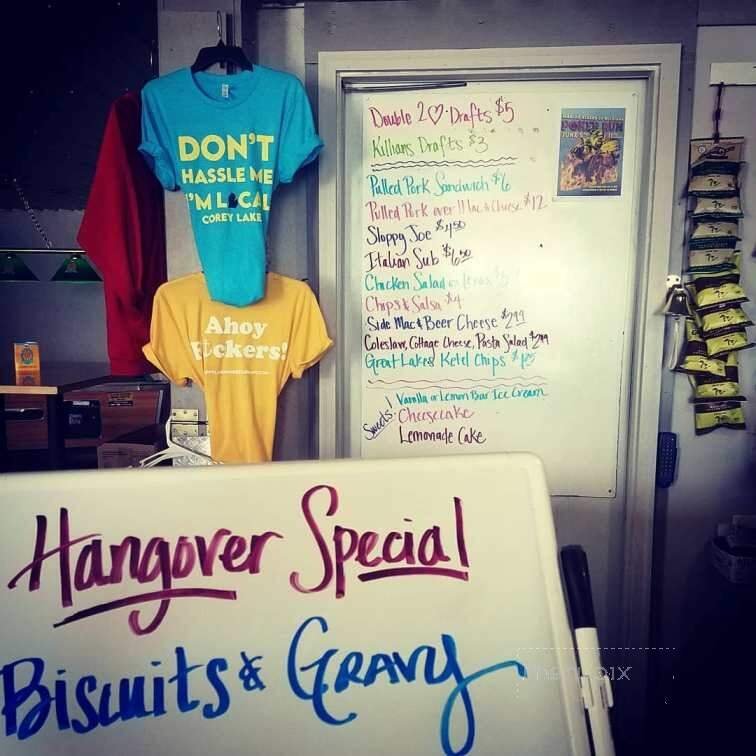 DON'T
HASSLE ME
I'M L CAL
COREY LAKE
Ahoy
F ckers!
Double 2♡ Drafts $5
Killians Drafts $3
Pulled Pork Sandwich $6
Pulled Pork over Mac & Cheese $12
Sloppy Joe $4.50
Italian Sub $6.50
Chicken Salad
Chips & Salsa $4
Side Mac & Beer Cheese $2.99
Coleslaw, Cottage Cheese, Pasta Salad $2.99
Great Lakes Kettel Chips
Sweets!
Vanilla or Lemon Bar Ice Cream
Cheesecake
Lemonade Cake
Hangover Special
Biscuits & Gravy